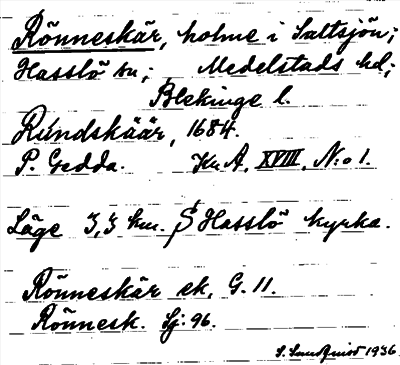 Rönneskär, holme i Saltsjön;
Hasslö sn; Medelstads hd;
Blekinge l.
Rúndskäär, 1684.
P. Gedda. Kr. A. XVIII. N:o 1.
Läge 3,3 km. S Hasslö kyrka.
Rönneskär ek. G. 11.
Rönnesk. Sj: 96.
S. Sundquist 1936